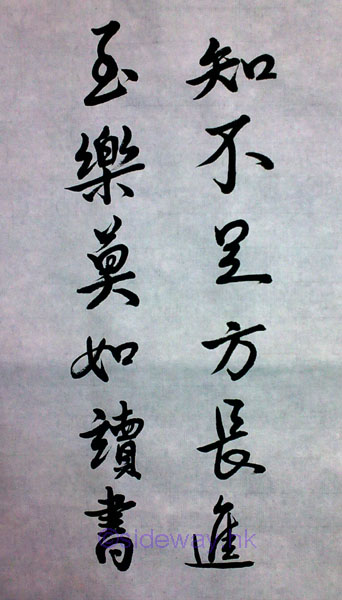 知不足方長進
至樂莫如讀書
©sideway.hk